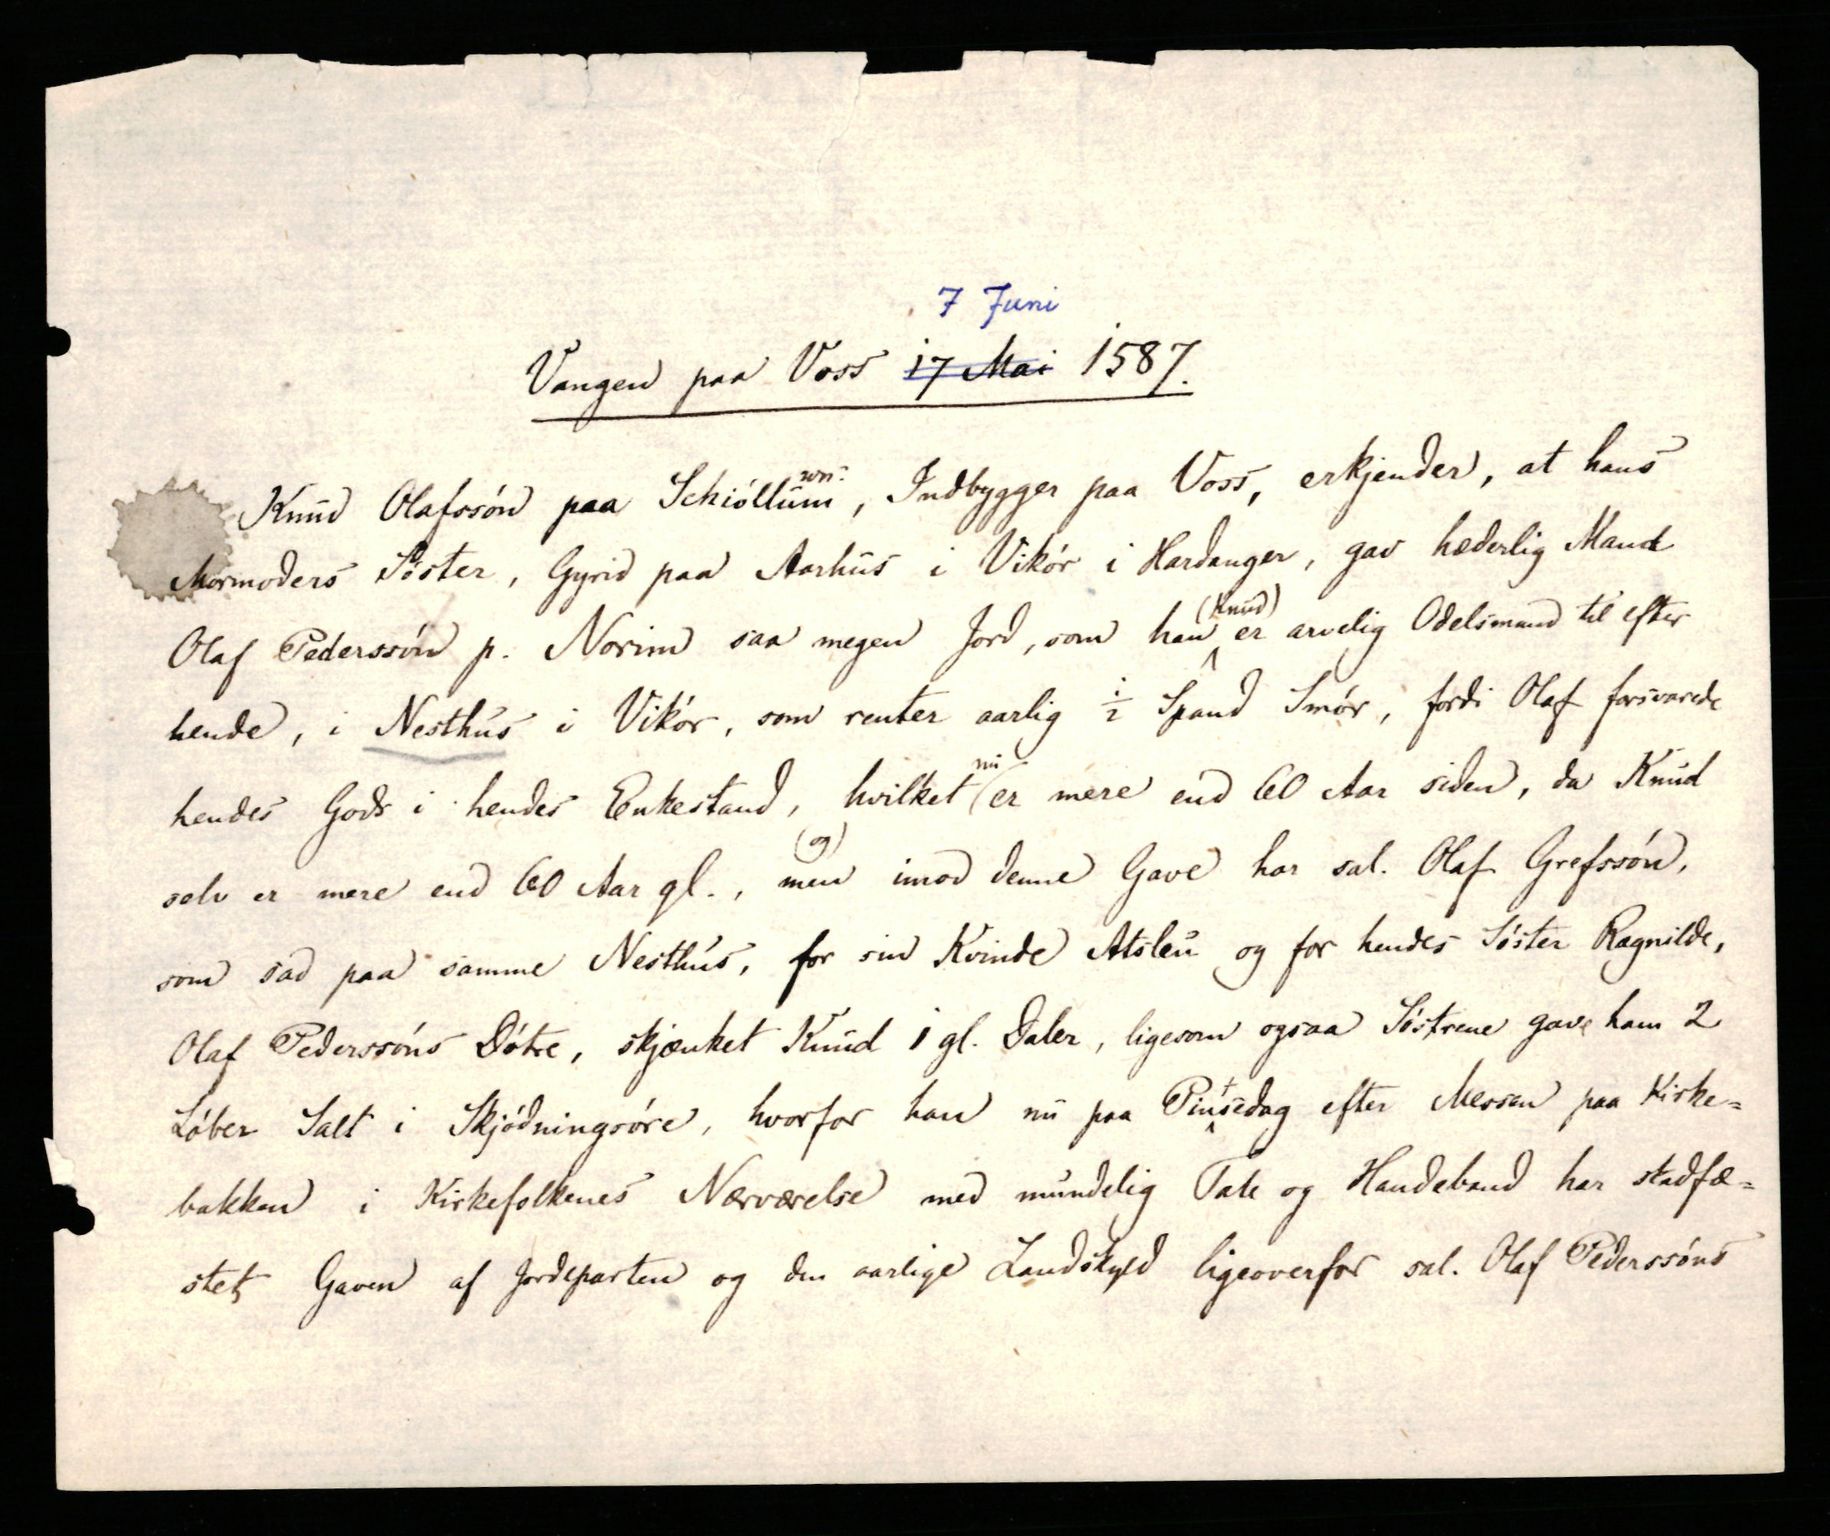 7 Juni
Vangen paa Voss 17 Mai 1587.
Knud Olafssön paa Schiöllum, Indbygger paa Voss, erkjender, at hans
Mormoders Söster, Gyrid paa Aarhus i Vikör i Hardanger, gav hæderlig Mand
Olaf Pederssön p. Norim saa megen Jord, som han (Knud) er arvelig Odelsmand til efter
hende, i Nesthus i Vikör, som renter aarlig ½ Spand Smör, fordi Olaf forsvarede
hendes Gods i hendes Enkestand, hvilket nu er mere end 60 Aar siden, da Knud
selv er mere end 60 Aar gl., men (og) imod denne Gave har sal. Olaf Grefssön,
som sad paa samme Nesthus, for sin Kvinde Atsleu og for hendes Söster Ragnilde,
Olaf Pederssöns Dötre, skjænket Knud 1 gl. Daler, ligesom ogsaa Söstrene gave ham 2
Löber Salt i Skjödningsöre, hvorfor han nu paa Pintsedag efter Messen paa Kirke=
bakken i Kirkefolkenes Nærværelse med mundelig Tale og Haandeband har stadfæ=
stet Gaven af Jordeparten og den aarlige Landskyld ligeoverfor sal. Olaf Pederssöns